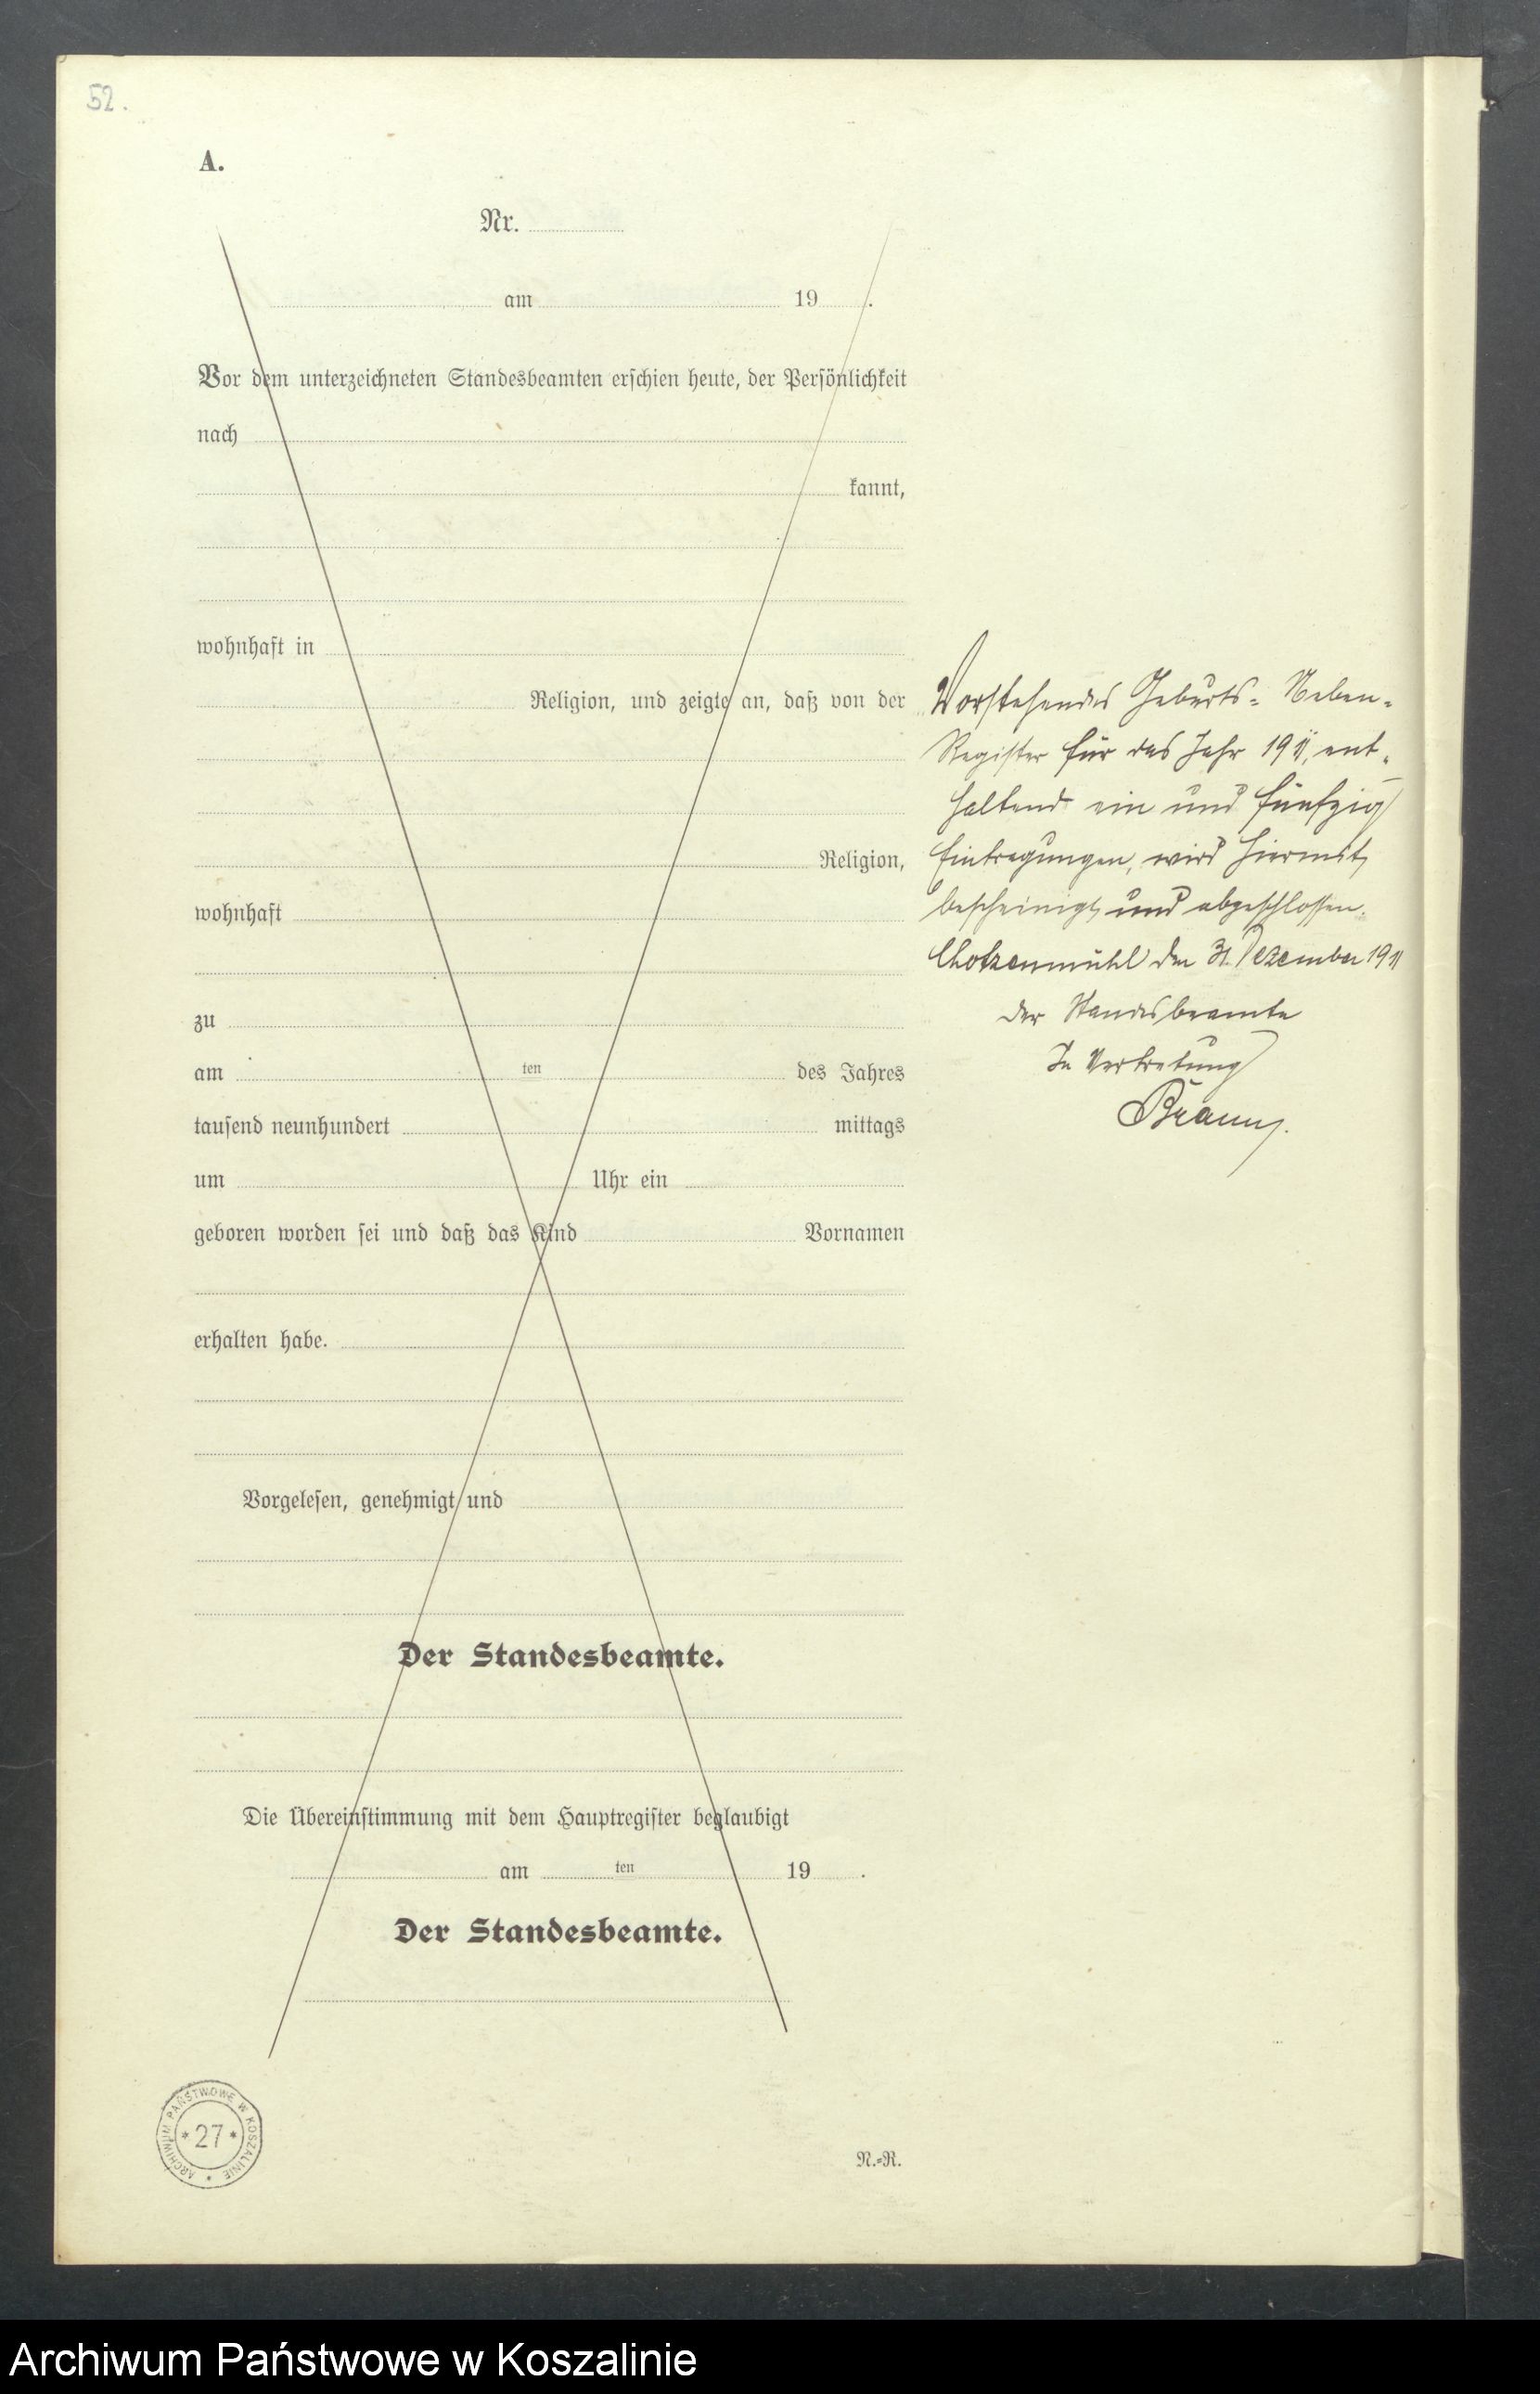 52.
A.
Nr.
am 19 .
Vor dem unterzeichneten Standesbeamten erschien heute, der Persönlichkeit
nach
kannt,
wohnhaft in
Religion, und zeigte an, daß von der
Religion,
wohnhaft
zu
am ten des Jahres
tausend neunhundert mittags
um Uhr ein
geboren worden sei und daß das Kind Vornamen
erhalten habe.
Vorgelesen, genehmigt und
Der Standesbeamte.
Die Übereinstimmung mit dem Hauptregister beglaubigt
am ten 19 .
Der Standesbeamte.
N.=R.
Vorstehendes Geburts= Neben=
Register für das Jahr 1911, ent=
haltend ein und fünfzig
Eintragungen, wird hiermit
bescheinigt und abgeschlossen.
Chotzenmühl den 31. Dezember 1911
Der Standesbeamte
In Vertretung
ARCHIWUM PAŃSTWOWE W KOSZALINIE
* 27 *
Archiwum Państwowe w Koszalinie